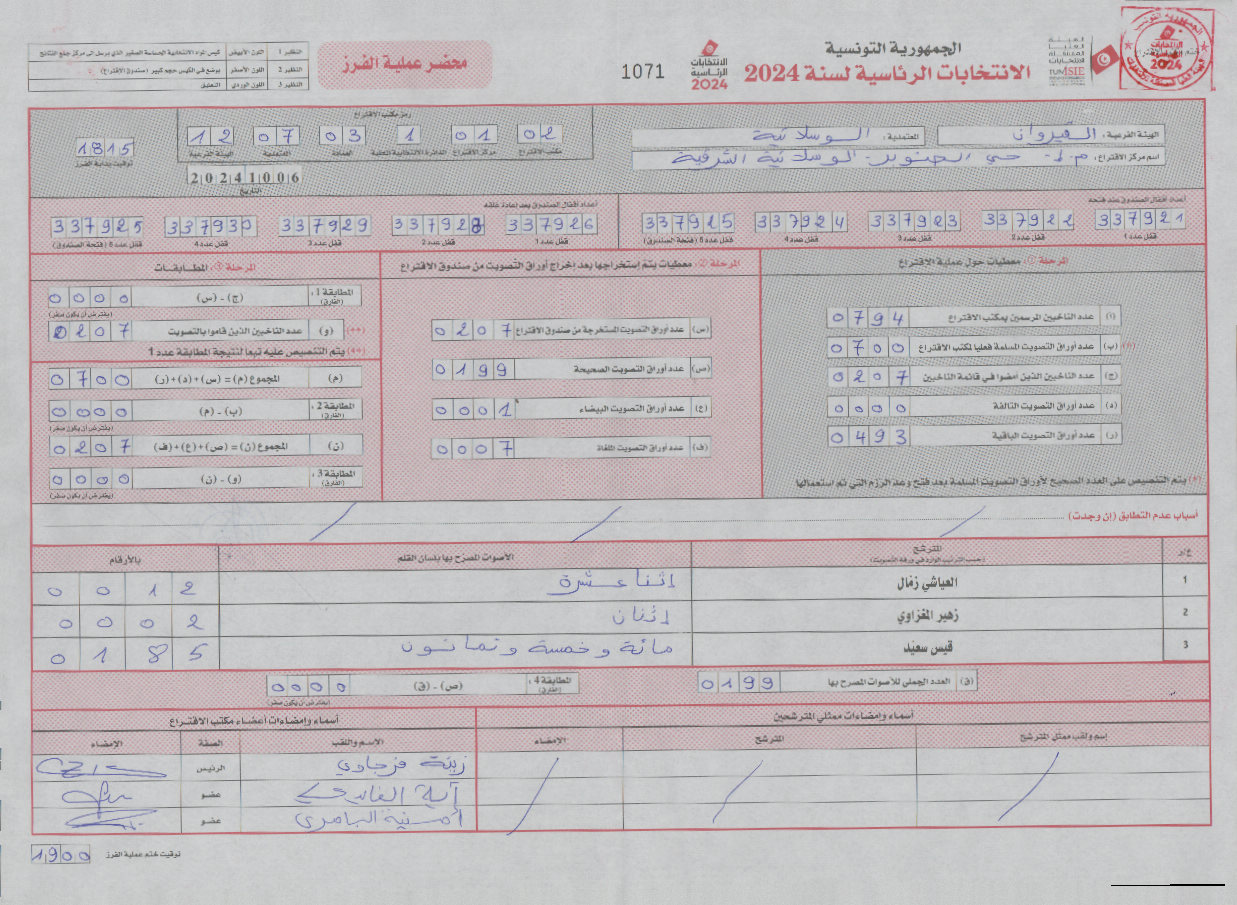 الجمهورية التونسية
الانتخابات الرئاسية لسنة 2024
الانتخابات الرئاسية 2024
1071
محضر عملية الفرز
النظير 1 اللون الأبيض كيس المواد الانتخابية الحساسة الصغير الذي يرسل الى مركز جمع النتائج
النظير 2 اللون الأصفر يوضع في الكيس حجم كبير (صندوق الاقتراع)
النظير 3 اللون الوردي التعليق
الهيئة الفرعية : القيروان المعتمدية : الوسلاتية
اسم مركز الاقتراع : م.إ- حي الوسلاتية الشرقية
رمز مكتب الاقتراع
02 01 1 03 07 12
مكتب الاقتراع مركز الاقتراع الدائرة الانتخابية المحلية العمادة المعتمدية الهيئة الفرعية
1815
توقيت بداية الفرز
20241006
التاريخ
أعداد أقفال الصندوق عند فتحه
337921 337922 337923 337924 337925
قفل عدد 1 قفل عدد 2 قفل عدد 3 قفل عدد 4 قفل عدد 5 (فتحة الصندوق)
أعداد أقفال الصندوق بعد إعادة غلقه
337926 337928 337929 337930 337925
قفل عدد 1 قفل عدد 2 قفل عدد 3 قفل عدد 4 قفل عدد 5 (فتحة الصندوق)
المرحلة ①: معطيات حول عملية الاقتراع
(أ) عدد الناخبين المرسمين بمكتب الاقتراع 0794
(*) (ب) عدد أوراق التصويت المسلمة فعليا لمكتب الاقتراع 0700
(ج) عدد الناخبين الذين أمضوا في قائمة الناخبين 0207
(د) عدد أوراق التصويت التالفة 0000
(ر) عدد أوراق التصويت الباقية 0493
(*) يتم التنصيص على العدد الصحيح لأوراق التصويت المسلمة بعد فتح وعد الرزم التي تم استعمالها
المرحلة ②: معطيات يتم إستخراجها بعد إخراج أوراق التصويت من صندوق الاقتراع
(س) عدد أوراق التصويت المستخرجة من صندوق الاقتراع 0207
(ص) عدد أوراق التصويت الصحيحة 0199
(ع) عدد أوراق التصويت البيضاء 0001
(ف) عدد أوراق التصويت الملغاة 0007
المرحلة ③: المطابقات
المطابقة 1 : (الفارق) (ج) - (س) 0000
(يفترض أن يكون صفر)
(**) (و) عدد الناخبين الذين قاموا بالتصويت 0207
(**) يتم التنصيص عليه تبعا لنتيجة المطابقة عدد 1
(م) المجموع (م) = (س)+(د)+(ر) 0700
المطابقة 2 : (الفارق) (ب) - (م) 0000
(يفترض أن يكون صفر)
(ن) المجموع (ن) = (ص)+(ع)+(ف) 0207
المطابقة 3 : (الفارق) (و) - (ن) 0000
(يفترض أن يكون صفر)
أسباب عدم التطابق (إن وجدت)
ع/ر المترشح (حسب الترتيب الوارد في ورقة التصويت) الأصوات المصرح بها بلسان القلم بالأرقام
1 العياشي زمال اثنا عشرة 0012
2 زهير المغزاوي اثنان 0002
3 قيس سعيد مائة و خمسة و ثمانون 0185
(ق) العدد الجملي للأصوات المصرح بها 0199
المطابقة 4 : (الفارق) (ص) - (ق) 0000
(يفترض أن يكون صفر)
أسماء وإمضاءات ممثلي المترشحين
إسم ولقب ممثل المترشح المترشح الامضاء
أسماء وإمضاءات أعضاء مكتب الاقتراع
الاسم واللقب الصفة الإمضاء
زينة فرجاوي الرئيس
آية عضو
أمنية عضو
توقيت ختم عملية الفرز 1900